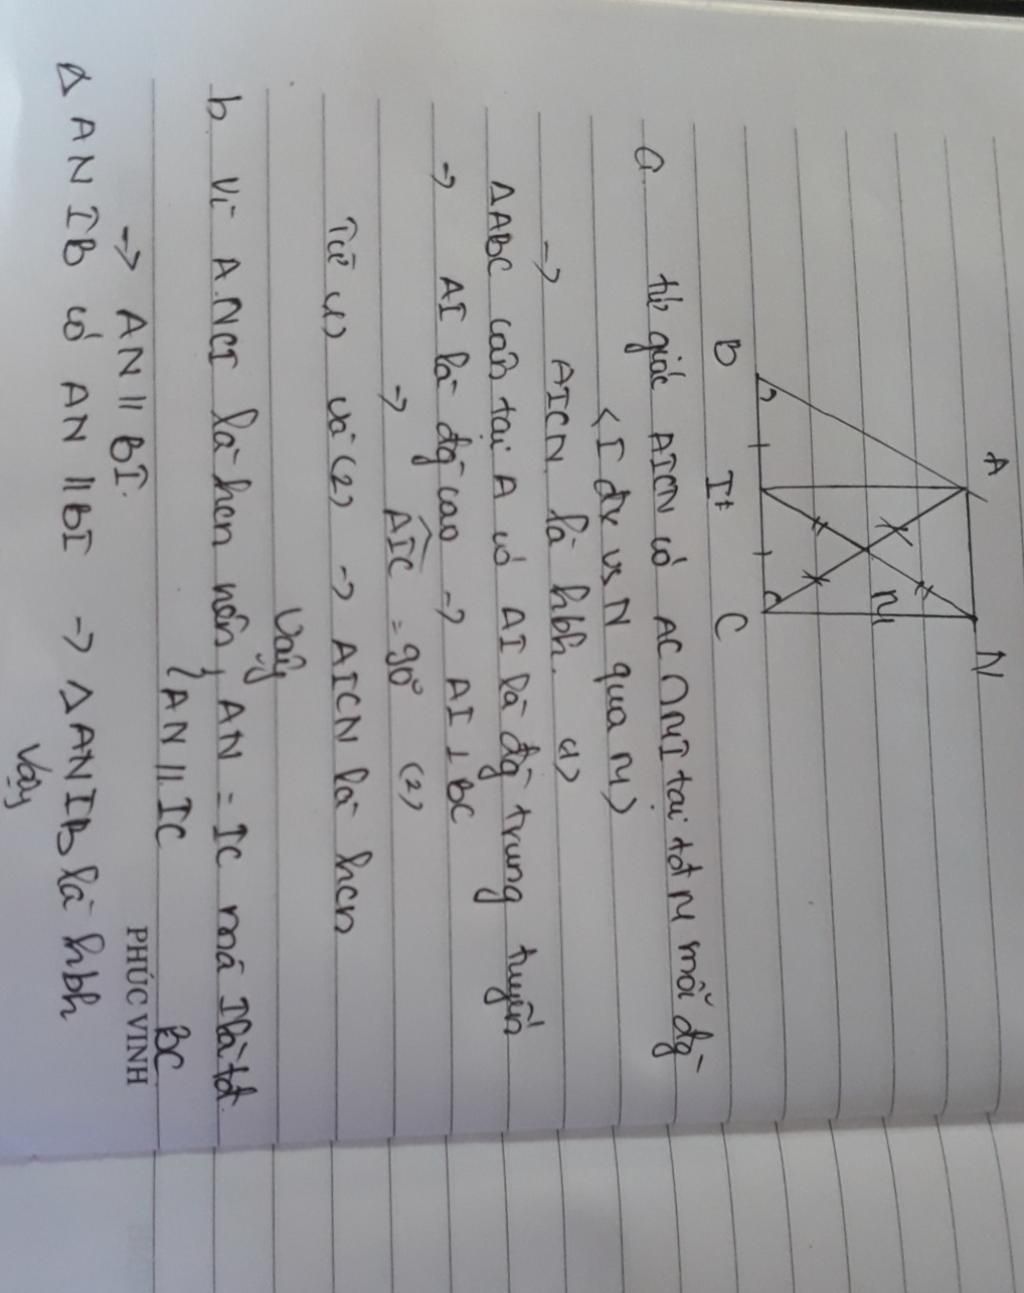 A
N
M
B
I
C
a. tứ giác AICN có AC ∩ NI tại tđ M mỗi đg
< I đx vs N qua M >
-> AICN là hbh. (1)
ΔABC cân tại A có AI là đg trung tuyến
-> AI là đg cao -> AI ⊥ BC
-> AIC = 90° (2)
Từ (1) và (2) -> AICN là hcn
Vậy
b Vì ANCI là hcn nên { AN = IC mà I là tđ
AN // IC BC
-> AN // BI.
Δ ANIB có AN // BI -> Δ ANIB là hbh
Vậy
PHÚC VINH